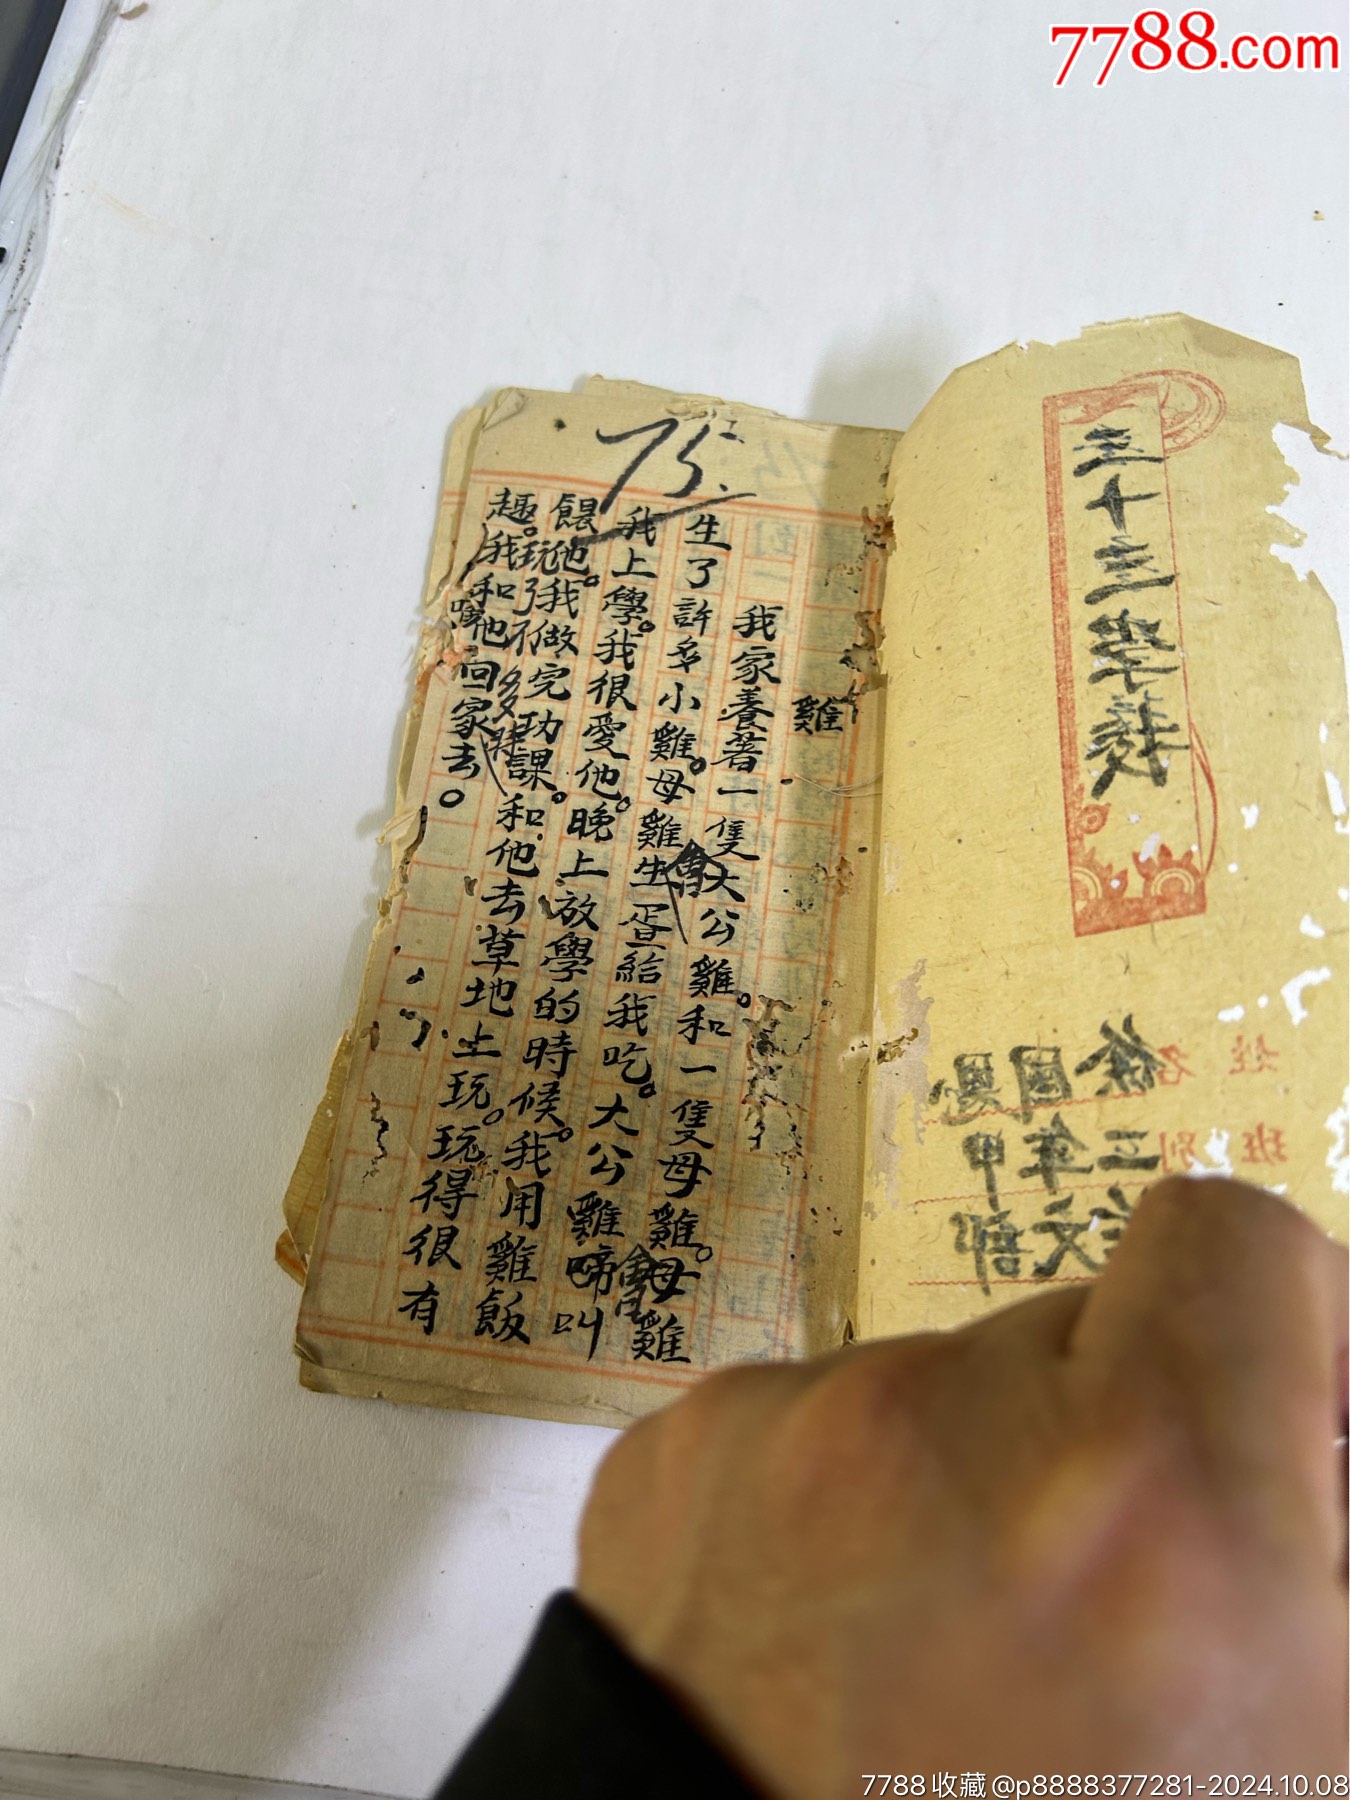 75
雞
我家養著一隻大公雞。和一隻母雞。母雞
會
生了許多小雞。母雞生蛋給我吃。大公雞啼叫
會
我上學。我很愛他。晚上放學的時候。我用雞飯
餵他。我做完功課。和他去草地上玩。玩得很有
趣。玩了不多時
我和他回家去。
學校
姓名
班別
徐國恩
三年甲
文部
7788.com
7788收藏@p8888377281-2024.10.08